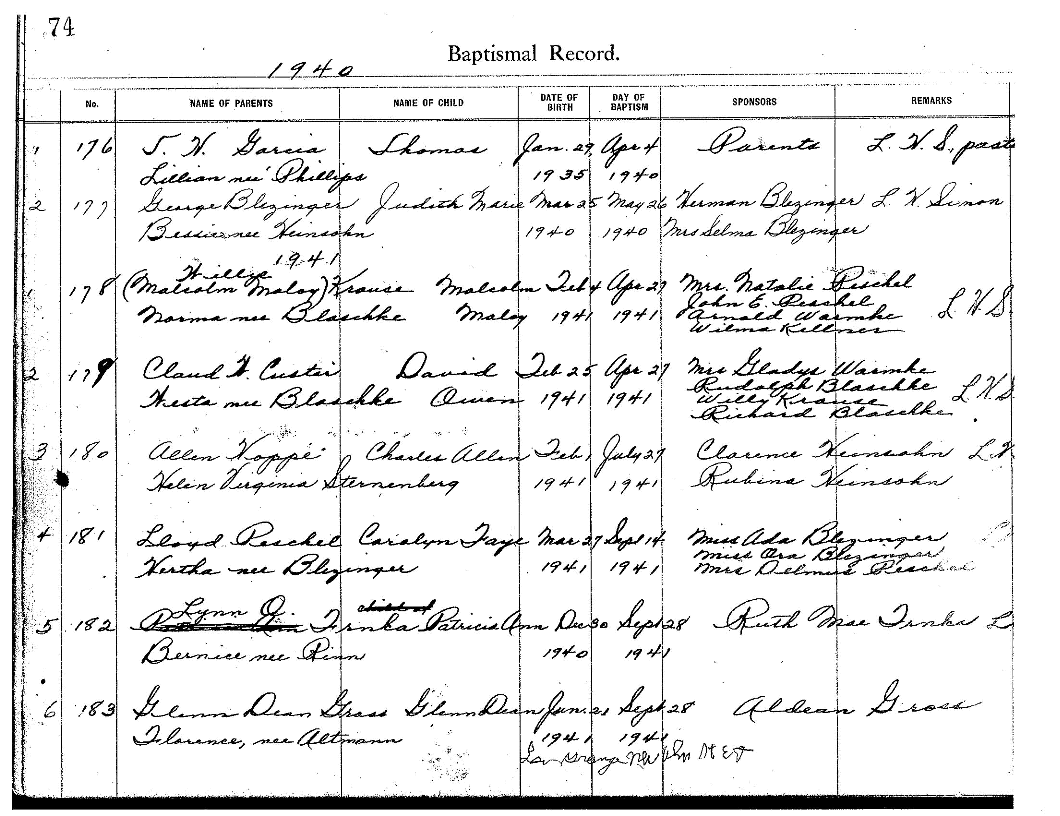 74
Baptismal Record.
1940
No. NAME OF PARENTS NAME OF CHILD DATE OF BIRTH DAY OF BAPTISM SPONSORS REMARKS
1 176 J. H. Garcia Thomas Jan. 29, Apr 4 Parents L. H. S., past
Lillian nee' Phillips 1935 1940
2 177 George Blezinger Judith Marie Mar 25 May 26 Herman Blezinger L H Simon
Bessie nee Heinsohn 1940 1940 Mrs Selma Blezinger
1941
Willye
1 178 (Malcolm Maloy) Krause Malcolm Feb 4 Apr 27 Mrs. Natalie Peschel
John E. Peschel L H S.
Norma nee Blaschke Maloy 1941 1941 Arnold Warmke
Wilma Killner
2 179 Claud H. Custer David Feb 25 Apr 27 Mrs Gladys Warmke
Rudolph Blaschke
Hesta nee Blaschke Owen 1941 1941 Willy Krause L H S
Richard Blaschke
3 180 Allen Hoppe Charles Allen Feb 1 July 27 Clarence Heinsohn L H
Helen Virginia Sternenberg 1941 1941 Rubina Heinsohn
4 181 Lloyd Peschel Carolyn Faye Mar 27 Sept 14 Miss Ada Blezinger
Miss Ora Blezinger
Hertha nee Blezinger 1941 1941 Mrs Delmus Peschel
Lynn O. child of
5 182 Trnka Patricia Ann Dec 30 Sept 28 Ruth Mae Trnka L
Bernice nee Rinn 1940 1941
6 183 Glenn Dean Gross Glenn Dean Jun. 21 Sept 28 Aldean Gross
Florence, nee Altmann 1941 1941